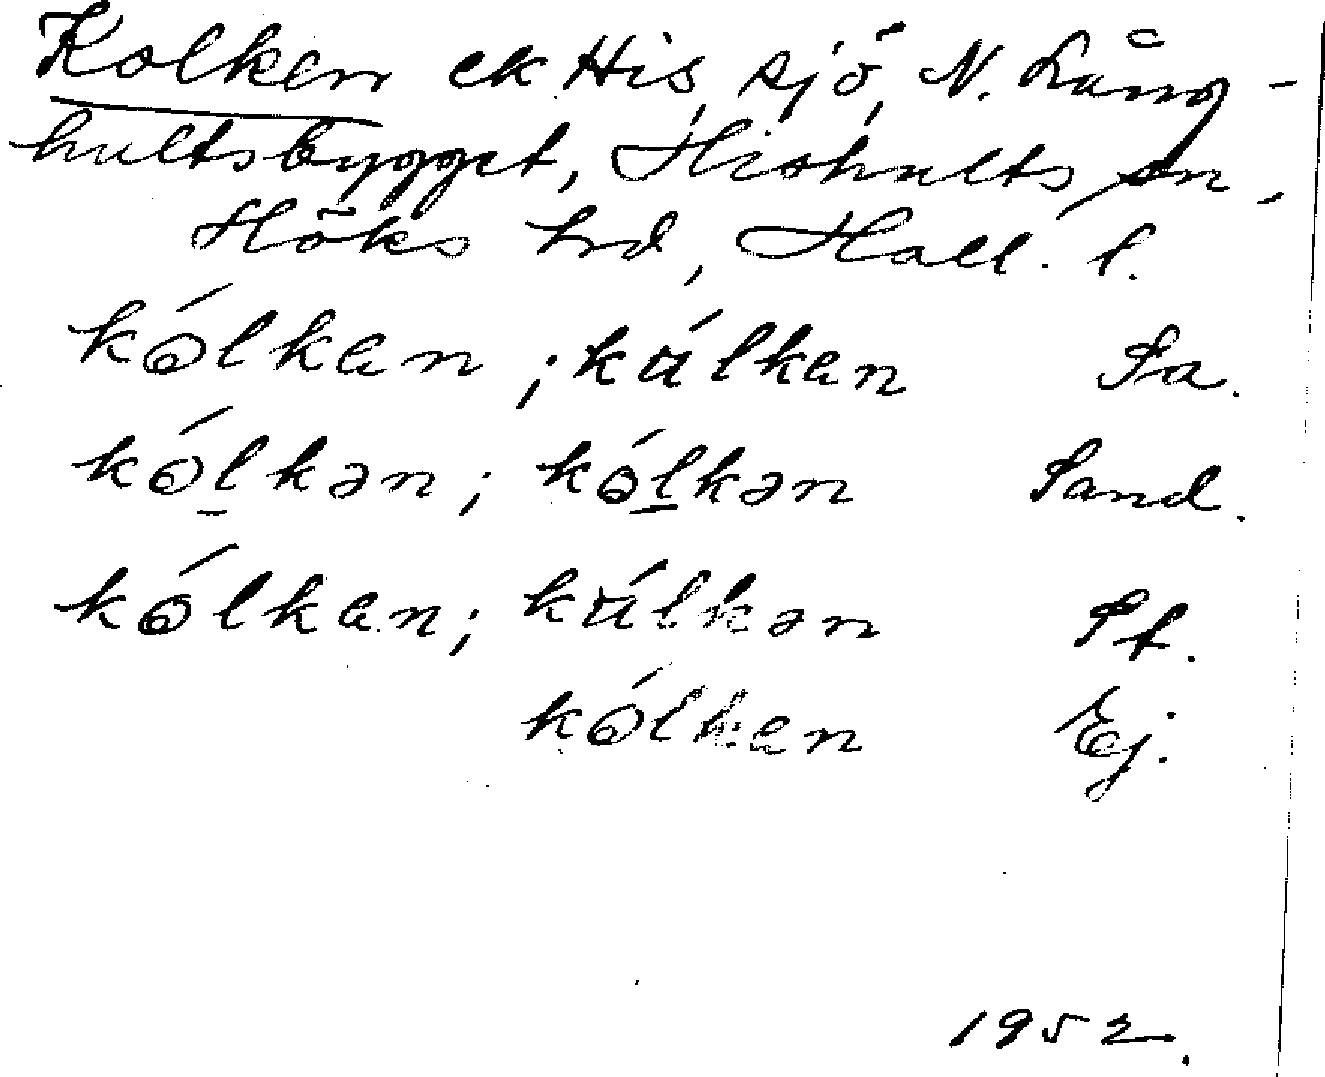 Kolken ek His, sjö, N. Lång-
hultsbygget, Hishults sn,
Höks hrd, Hall. l.
kólkan; kúlkan Sa.
kól̲kən; kól̲kən Sand.
kólkan; kúlkən St.
kólkan Ej.
1952.